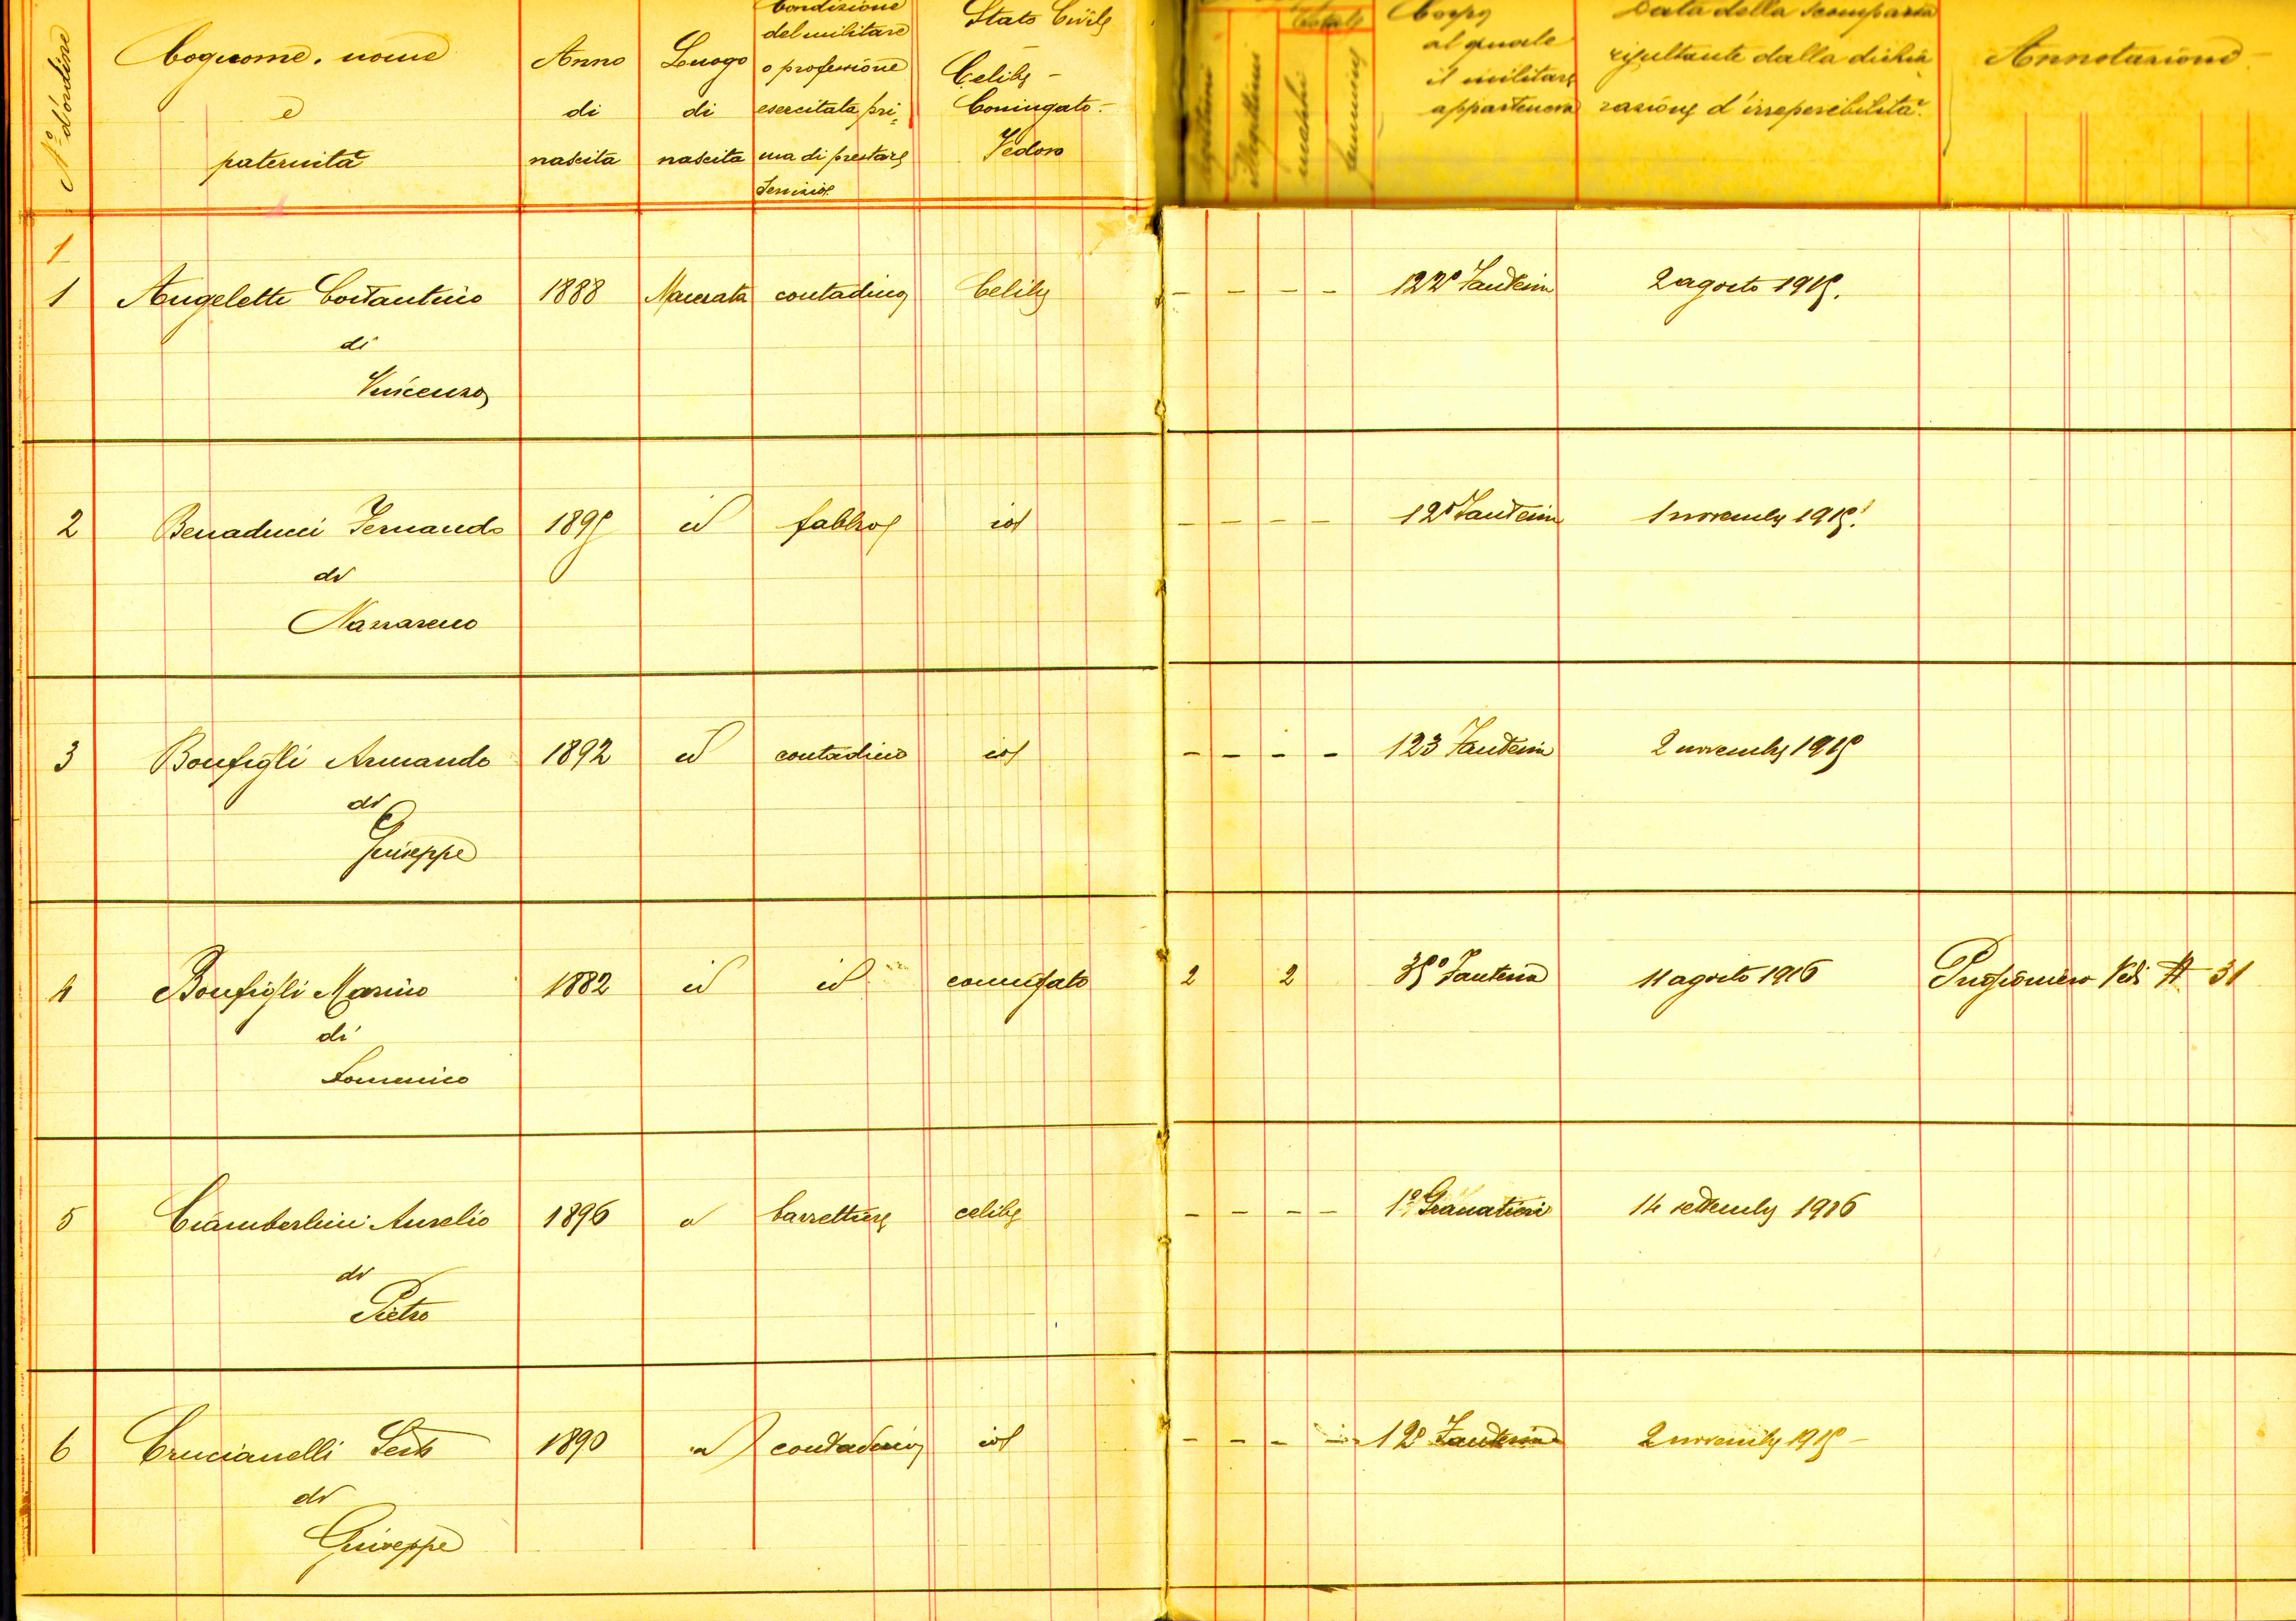 N.° d'ordine
Cognome, nome
e
paternità
Anno
di
nascita
Luogo
di
nascita
Condizione
del militare
o professione
esercitata pri=
ma di prestare
servizio.
Stato Civile
Celibe -
Coniugato -
Vedovo
legittimi
illegittimi
Totale
maschi
femmine
Corpo
al quale
il militare
apparteneva
Data della scomparsa
risultante dalla dichia
razione d'irreperibilità.
Annotazione -
1
1 Angeletti Costantino 1888 Macerata contadino Celibe - - - - 122° Fanteria 2 agosto 1915.
di
Vincenzo
2 Benaducci Fernando 1895 id fabbro id - - - - 12° Fanteria 1 novembre 1915.
di
Nazzareno
3 Bonfigli Armando 1892 id contadino id - - - - 123 Fanteria 2 novembre 1915
di
Giuseppe
4 Bonfigli Marino 1882 id id coniugato 2 2 35° Fanteria 11 agosto 1916 Prigioniero Vedi A 31
di
Domenico
5 Ciamberlini Aurelio 1896 id barrettiere celibe - - - - 1° Granatieri 14 settembre 1916
di
Pietro
6 Crucianelli Sesto 1890 id contadino id - - - - 12° Fanteria 2 novembre 1915 -
di
Giuseppe